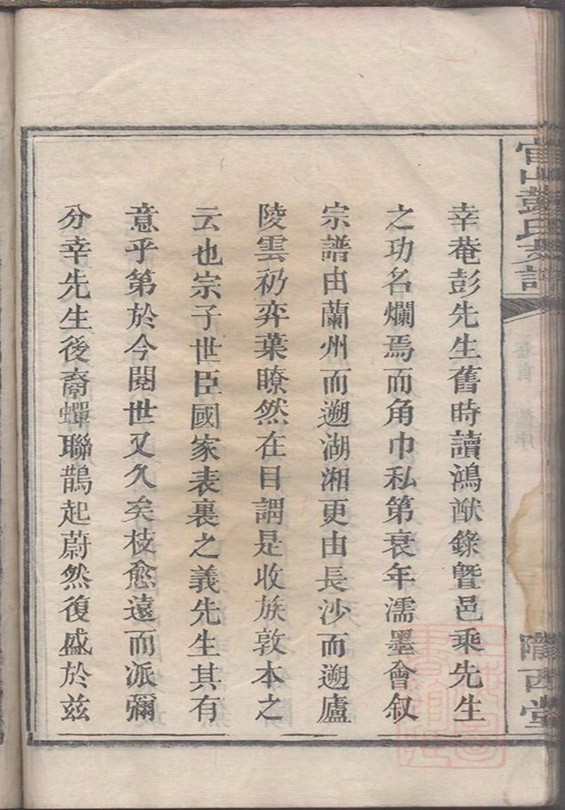 幸菴彭先生舊時讀鴻猷錄曁邑乘先生
之功名爛焉而角巾私第衰年濡墨會叙
宗譜由蘭州而遡湖湘更由長沙而遡廬
陵雲礽弈葉瞭然在目謂是收族敦本之
云也宗子世臣國家表裏之義先生其有
意乎第於今閱世又久矣枝愈遠而派彌
分幸先生後裔蟬聯鵲起蔚然復盛於兹
彭氏支譜
隴西堂